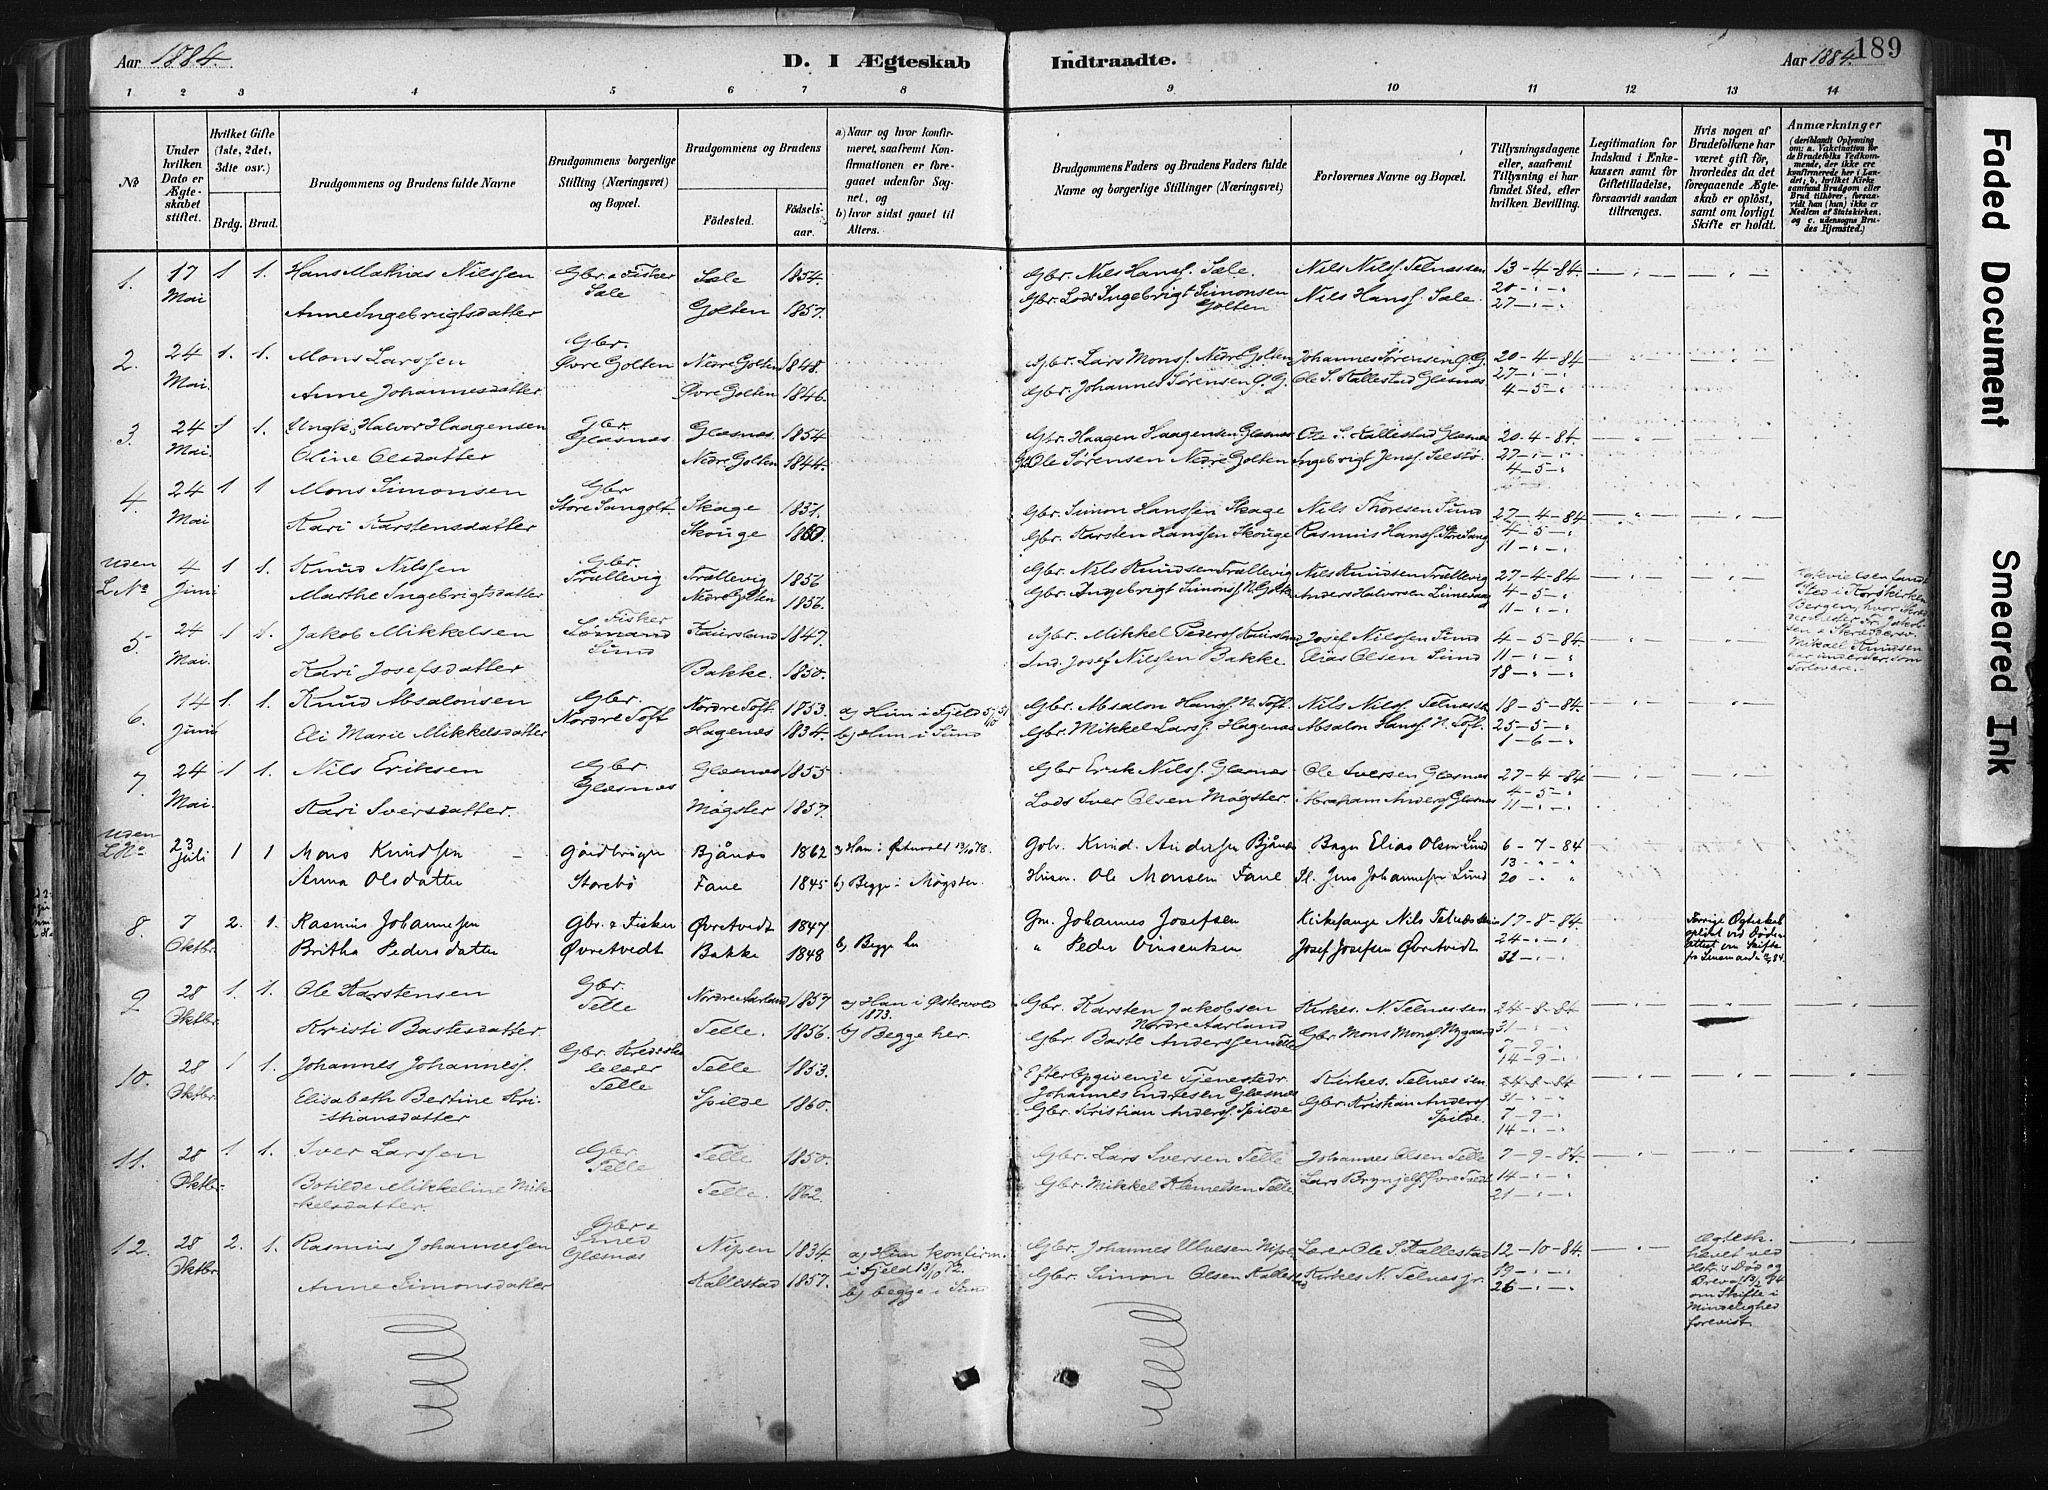 Aar 1884.
D. I Ægteskab Indtraadte.
Aar 1884.
189
1 2 3 4 5 6 7 8 9 10 11 12 13 14
No
Under hvilken Dato er Ægteskabet stiftet.
Hvilket Gifte (1ste, 2det, 3die osv.)
Brdg. Brud.
Brudgommens og Brudens fulde Navne
Brudgommens borgerlige Stilling (Næringsvei) og Bopæl.
Brudgommens og Brudens
Födested. Födselsaar.
a) Naar og hvor konfirmeret, saafremt Konfirmationen er foregaaet udenfor Sognet, og
b) hvor sidst gaaet til Alters.
Brudgommens Faders og Brudens Faders fulde Navne og borgerlige Stillinger (Næringsvei)
Forlovernes Navne og Bopæl.
Tillysningsdagene eller, saafremt Tillysning ei har fundet Sted, efter hvilken Bevilling.
Legitimation for Indskud i Enkekassen samt for Giftetilladelse, forsaavidt saadan tiltrænges.
Hvis nogen af Brudefolkene har været gift för, hvorledes da det foregaaende Ægteskab er oplöst, samt om lovligt Skifte er holdt.
Anmærkninger
(deriblandt Oplysning om: a. Vakcination for de Brudefolks Vedkommende, der ikke ere konfirmerede her i Landet; b. hvilket Kirkesamfund Brudgom eller Brud tilhører, forsaavidt han (hun) ikke er Medlem af Statskirken, og c. udensogns Brudes Hjemsted.)
1. 17 Mai 1 1. Hans Mathias Nilssen Gbr. & Fisker Sæle Sæle 1854. Gbr. Nils Hanss. Sæle. Nils Nilss. Telnæssen 13-4-84
Anne Ingebrigtsdatter Golten 1857. Gbr. Lods Ingebrigt Simonsen Golten Nils Hanss. Sæle. 20-"-" 27-"-"
2. 24 Mai. 1. 1. Mons Larssen Gbr. Øvre Golten Nedre Golten 1848. Gbr. Lars Monss. Nedre Golten Johannes Sørensen Ø. G. 20-4-84
Anne Johannesdatter Øvre Golten 1846. Gbr. Johannes Sørensen Ø. G. Ole S. Kallestad Glæsnæs 27-"-" 4-5-"
3. 24 Mai. 1 1. Ungk. Halvor Haagensen Gbr. Glæsnæs Glæsnæs 1854 Gbr. Haagen Haagensen Glæsnæs Ole S. Kallestad Glæsnæs 20-4-84.
Oline Olsdatter Nedre Golten 1844. Gbr. Ole Sørensen Nedre Golten Ingebrigt Jenss. Selstø. 27-"-" 4-5-"
4. 24 Mai 1 1 Mons Simonsen Gbr Store Sangolt. Skage 1851. Gbr. Simon Hanssen Skage Nils Thoresen Sund 27-4-84
Kari Karstensdatter Skouge Gbr. Karsten Hanssen Skouge Rasmus Hanss. 4-5-" 11-"-"
Uden L. No 4 Juni 1 1. Knud Nilssen Gbr. Trællevig Trællevig 1856 Gbr. Nils Knudsen Trællevig Nils Knudsen Trællevig 27-4-84
Marthe Ingebrigtsdatter Nedre Golten 1856. Gbr. Ingebrigt Simonss. N. Golten Anders Halvorsen 4-5-" 11-"-"
Egtevielsen fandt Sted i Korskirken Bergen, hvor
Mikael Knudsen
Forlovere.
5. 24 Mai. 1 1. Jakob Mikkelsen Fisker Sømand Sund 1847. Gbr. Mikkel Josef Nilssen Sund 4-5-84
Kari Josefsdatter Bakke. 1850. Ind. Josef Nilssen Bakke. Elias Olsen Sund 11-"-" 18-"-"
6. 14 Juni 1. 1. Knud Absalonsen Gbr. Nordre Toft Nordre Toft. 1853. a) Hun i Fjeld 5/10 51 Gbr. Absalon Hanss. N. Toft. Nils Nilss. Telnæssen 18-5-84.
Eli Marie Mikkelsdatter Hagenæs 1834. b) Hun i Sund Gbr. Mikkel Larss. Hagenæs Absalon Hanss. N. Toft. 25-5-" 1-6-"
7. 24 Mai 1 1. Nils Eriksen Gbr. Glæsnæs Glæsnæs 1855 Gbr Erik Nilss. Glæsnæs Ole Iversen Glæsnæs 27-4-84
Kari Iversdatter. Møgster 1857. Lods Iver Olsen Møgster. Abraham Anderss. Glæsnæs 4-5-" 11-"-"
Uden L No. 23 Juli 1 1 Mons Knudsen Gårdbruger Bjånæs 1862 a) Han i Østervold 13/10 78. Gbr. Knud Andersen Bjånæs Elias Olsen Sund 6-7-84
Anna Olsdatter Storebø Fane 1845 b) Begge i Møgster. Husm. Ole Monsen Fane Jens Johannesen Sund 13-"-" 20-"-"
8. 7 Oktbr. 2. 1. Rasmus Johannesen Gbr. & Fisker Øvretvedt 1847 b) Begge her Gm. Johannes Josefsen Kirkesanger Nils Telnæssen 17-8-84.
Britha Pedersdatter Øvretvedt Bakke 1848 " Peder Vinsentsen Josef Josefsen Øvretvedt 24-"-" 31-"-"
Forrige Ægteskab opløst ved Døden
attest om Skifte
9 28 Oktbr. 1. 1. Ole Karstensen Gbr. Telle Nordre Aarland 1857 a) Han i Østervold 1873. Gbr. Karsten Jakobsen Nordre Aarland Kirkes. N. Telnæssen 24-8-84
Kristi Bastesdatter Telle. 1856. b) Begge her. Gbr. Baste Anderssen Telle Gbr. Mons Monss. Nygaard 31-"-" 7-9-" 14-9-"
10. 28 Oktbr. 1 1. Johannes Johanness. Gbr. Telle Telle 1853. Efter Opgivende Tjenestedr. Johannes Endresen Glæsnæs Kirkes. Telnæssen 24-8-84
Elisabeth Bertine Kristiansdatter Spilde 1860. Gbr. Kristian Anderss. Spilde Gbr. Kristian Anderss. Spilde. 31-"-" 7-9-" 14-"-"
11. 28 Oktbr. 1. 1. Iver Larssen Gbr. Telle Telle 1850. Gbr. Lars Iversen Telle Johannes Olsen Telle 7-9-84.
Botilde Mikkeline Mikkelsdatter. Telle. 1862. Gbr. Mikkel Klemetsen Telle Lars Brynjelss. Øvre Tvedt 14-"-" 21-"-"
12. 28 Oktbr. 2. 1. Rasmus Johannessen Gbr & Smed Glæsnæs Nipen 1834. a) Han konfirm. i Fjeld 13/10 72. Gbr. Johannes Ulvesen Nipen Lærer Ole S. Kallestad 12-10-84.
Anne Simonsdatter Kallestad 1857. b) begge i Sund Gbr. Simon Olsen Kallestad Kirkes N. Telnæs jr. 19-"-" 26-"-"
Ægtesk. hævet ved Hstr.s Død og Brev a 13/2 84 om Skifte i Mindelighed forevist.
Faded Document
Smeared Ink